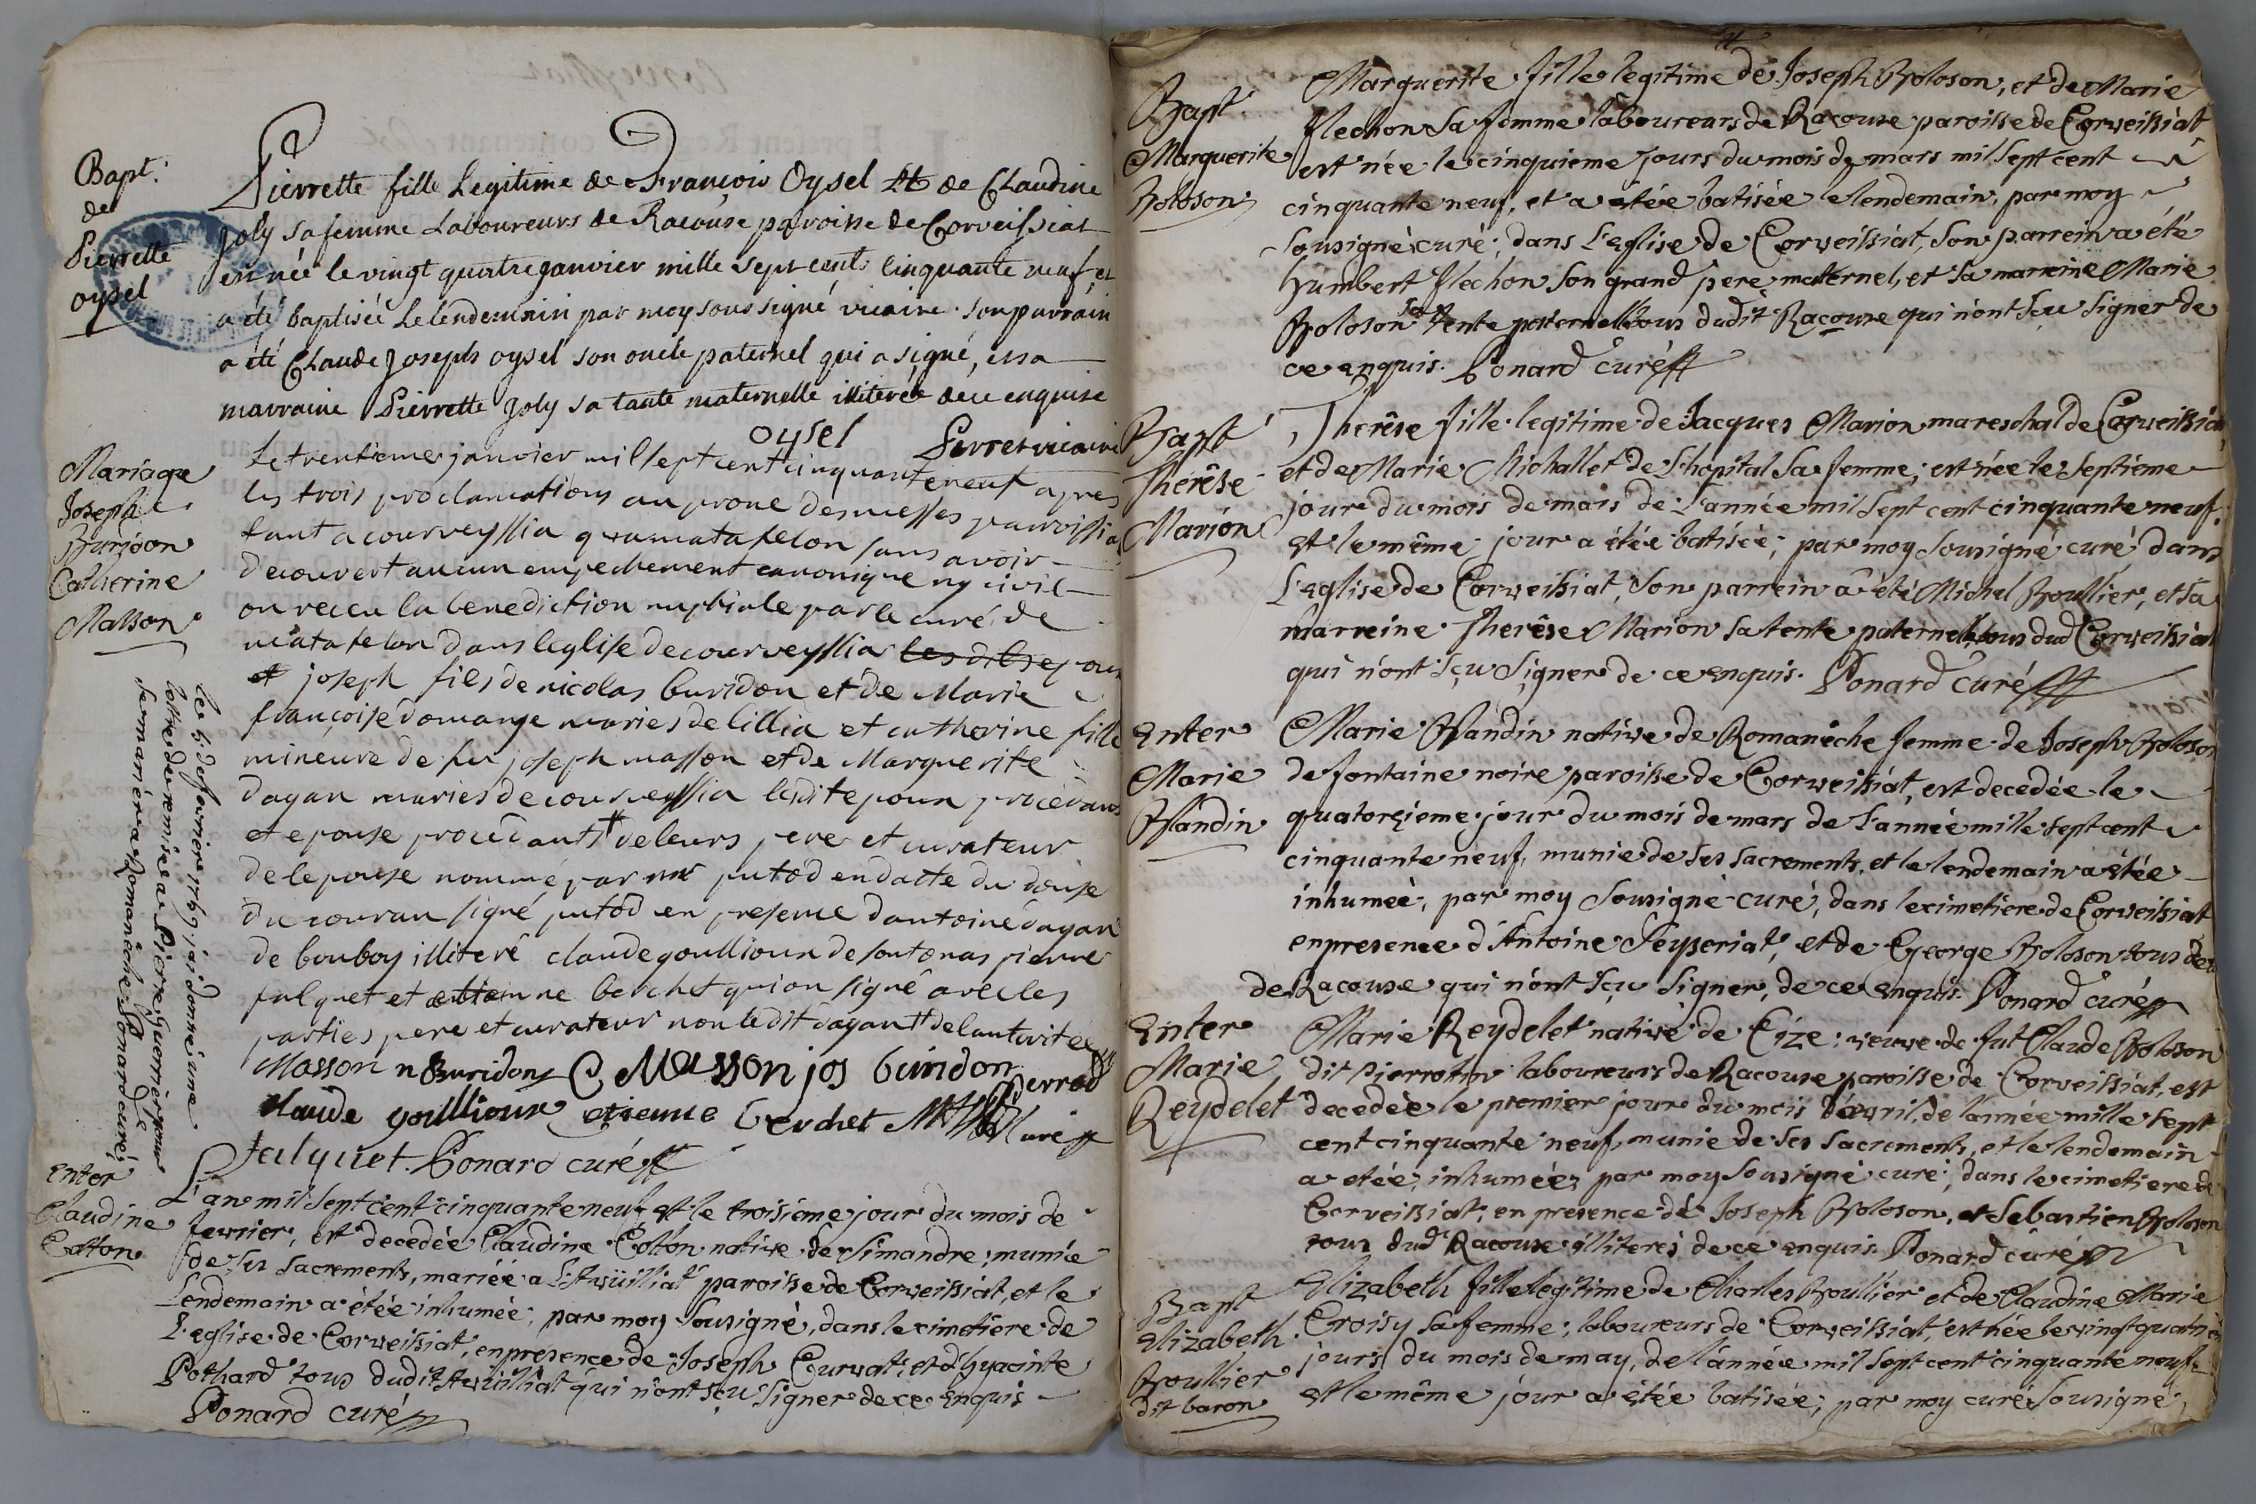 Bapt.
de
Pierrette
oysel
Pierrette fille Legitime de François Oysel Et de Claudine
Joly sa femme Laboureurs de Racouse paroisse de Corveissiat
est née le vingt quatre janvier mille sept cents cinquante neuf, et
a été baptisée Le lendemain par moy soussigné vicaire. son parrain
a été Claude Joseph oysel son oncle paternel qui a signé, et sa
marraine Pierrette Joly sa tante maternelle illiterée de ce enquise
oysel Perret vicaire
Mariage
Joseph
Buridon
Catherine
Masson
Le trentieme janvier mil sept cent cinquante neuf apres
les trois proclamations au prone des messes parroissial
tant a courveyssia qua matafelon sans avoir
decouvert aucun empechement canonique ny civil
on reccu la benediction nuptiale par le curé de
matafelon dans leglise de courveyssia les dits epoux
et joseph fils de nicolas buridon et de Marie
françoise domange mariés de lillia et catherine fille
mineure de feu joseph masson et de Marguerite
dagan mariés de courveyssia lesdit epoux procedans
et epouse procedants de leurs pere et curateur
de lepouse nommé par mr putod en datte du douse
du couran signé putod en presence dantoine dagan
de bouboy illiteré claude goullioux de soutonas pierre
fulquet et etienne berchet qui on signé avec les
parties pere et curateur non ledit dagan de lautorité
Masson n Buridon C Masson jos buridon
claude goullioux etienne berchet Perrod curé
fulquet. Ponard curé
les 5 de fevrier 1759 j'ai donné une
lettre de remise a Pierre Guerrier pour
se marier a Romanèche. Ponard curé
Enter
Claudine
Cotton
L'an mil sept cent cinquante neuf et le troisième jour du mois de
fevrier, est decedée Claudine Coton native de Simandre, munie
de ses sacrements, mariée a L'Arvuilliat paroisse de Corveissiat, et le
Lendemain a étée inhumée; par moy Sousigné, dans le cimetière de
L'eglise de Corveissiat, en presence de Joseph Curvat, et d'hyacinte
Pothard tous dudit Arvuilliat qui n'ont sçu signer de ce enquis
Ponard curé
Bapt
Marguerite
Boloson
Marguerite fille legitime de Joseph Boloson, et de Marie
flechon Sa femme laboureurs de Racouse paroisse de Corveissiat
est née le cinquieme jours du mois de mars mil sept cent
cinquante neuf, et a étée batisée le lendemain, par moy
Sousigné curé; dans L'eglise de Corveissiat, Son parrein a été
humbert flechon Son grand pere maternel, et sa marreine Marie
Boloson sa tente paternelle tous dudit Racouse qui n'ont sçu signer de
ce enquis. Ponard curé
Bapt
Therêse
Marion
Therêse fille legitime de Jacques Marion mareschal de Corveissiat
et de Marie Michallet de L'hopital Sa femme; est née le septième
jour du mois de mars de L'année mil sept cent cinquante neuf.
et le même jour a étée batisée; par moy Sousigné curé, dans
L'eglise de Corveissiat, Son parrein a été Michel Boullier, et sa
marreine Therêse Marion sa tente paternelle tous dud Corveissiat
qui n'ont sçu signer de ce enquis. Ponard Curé
Enter
Marie
Blandin
Marie Blandin native de Romanèche femme de Joseph Boloson
de fontaine noire paroisse de Corveissiat, est decedée le
quatorzieme jour du mois de mars de L'année mille sept cent
cinquante neuf, munie de ses sacrements, et le lendemain a étée
inhumée, par moy Sousigné curé, dans le cimetiere de Corveissiat
en presence d'Antoine Seyseriat, et de George Boloson tous deux
de Racouse qui n'ont sçu signer, de ce enquis. Ponard curé
Enter
Marie
Reydelet
Marie Reydelet native de Cize, veuve de fut Claude Boloson
dit Pierrotton laboureurs de Racouse paroisse de Corveissiat, est
decedée le premier jour du mois d'avril, de l'année mille sept
cent cinquante neuf, munie de ses sacrements, et le lendemain
a étée inhumée; par moy Sousigné curé, dans le cimetiere de
Corveissiat; en presence de Joseph Boloson, et Sebastien Boloson
tous dud Racouse illiterés de ce enquis. Ponard curé
Bapt
Elizabeth
Boullier
dit baron
Elizabeth fille legitime de Charles Boullier et de Claudine Marie
Croisy Sa femme; laboureurs de Corveissiat, est née le vingt quatrie
jours du mois de may, de l'année mil sept cent cinquante neuf
et le même jour a étée batisée; par moy curé Sousigné